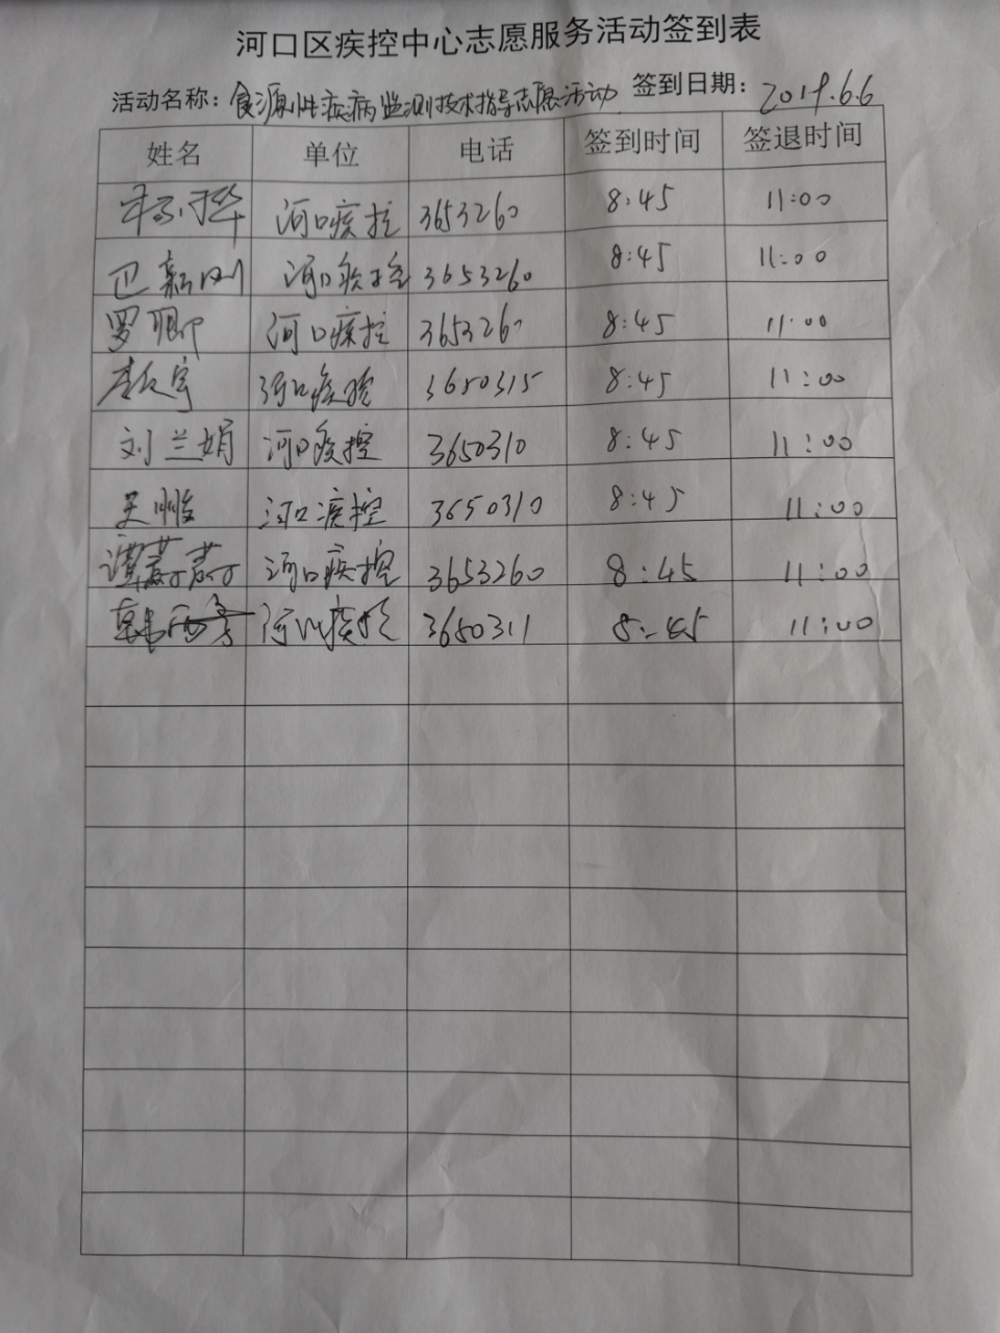 河口区疾控中心志愿服务活动签到表
活动名称：食源性疾病监测技术指导志愿活动 签到日期：2019.6.6
姓名 单位 电话 签到时间 签退时间
河口疾控 3653260 8:45 11:00
巴新刚 河口疾控 3653260 8:45 11:00
罗卿 河口疾控 3653260 8:45 11:00
河口疾控 3650315 8:45 11:00
刘兰娟 河口疾控 3650310 8:45 11:00
河口疾控 3650310 8:45 11:00
谭 河口疾控 3653260 8:45 11:00
韩 河口疾控 3650311 8:45 11:00